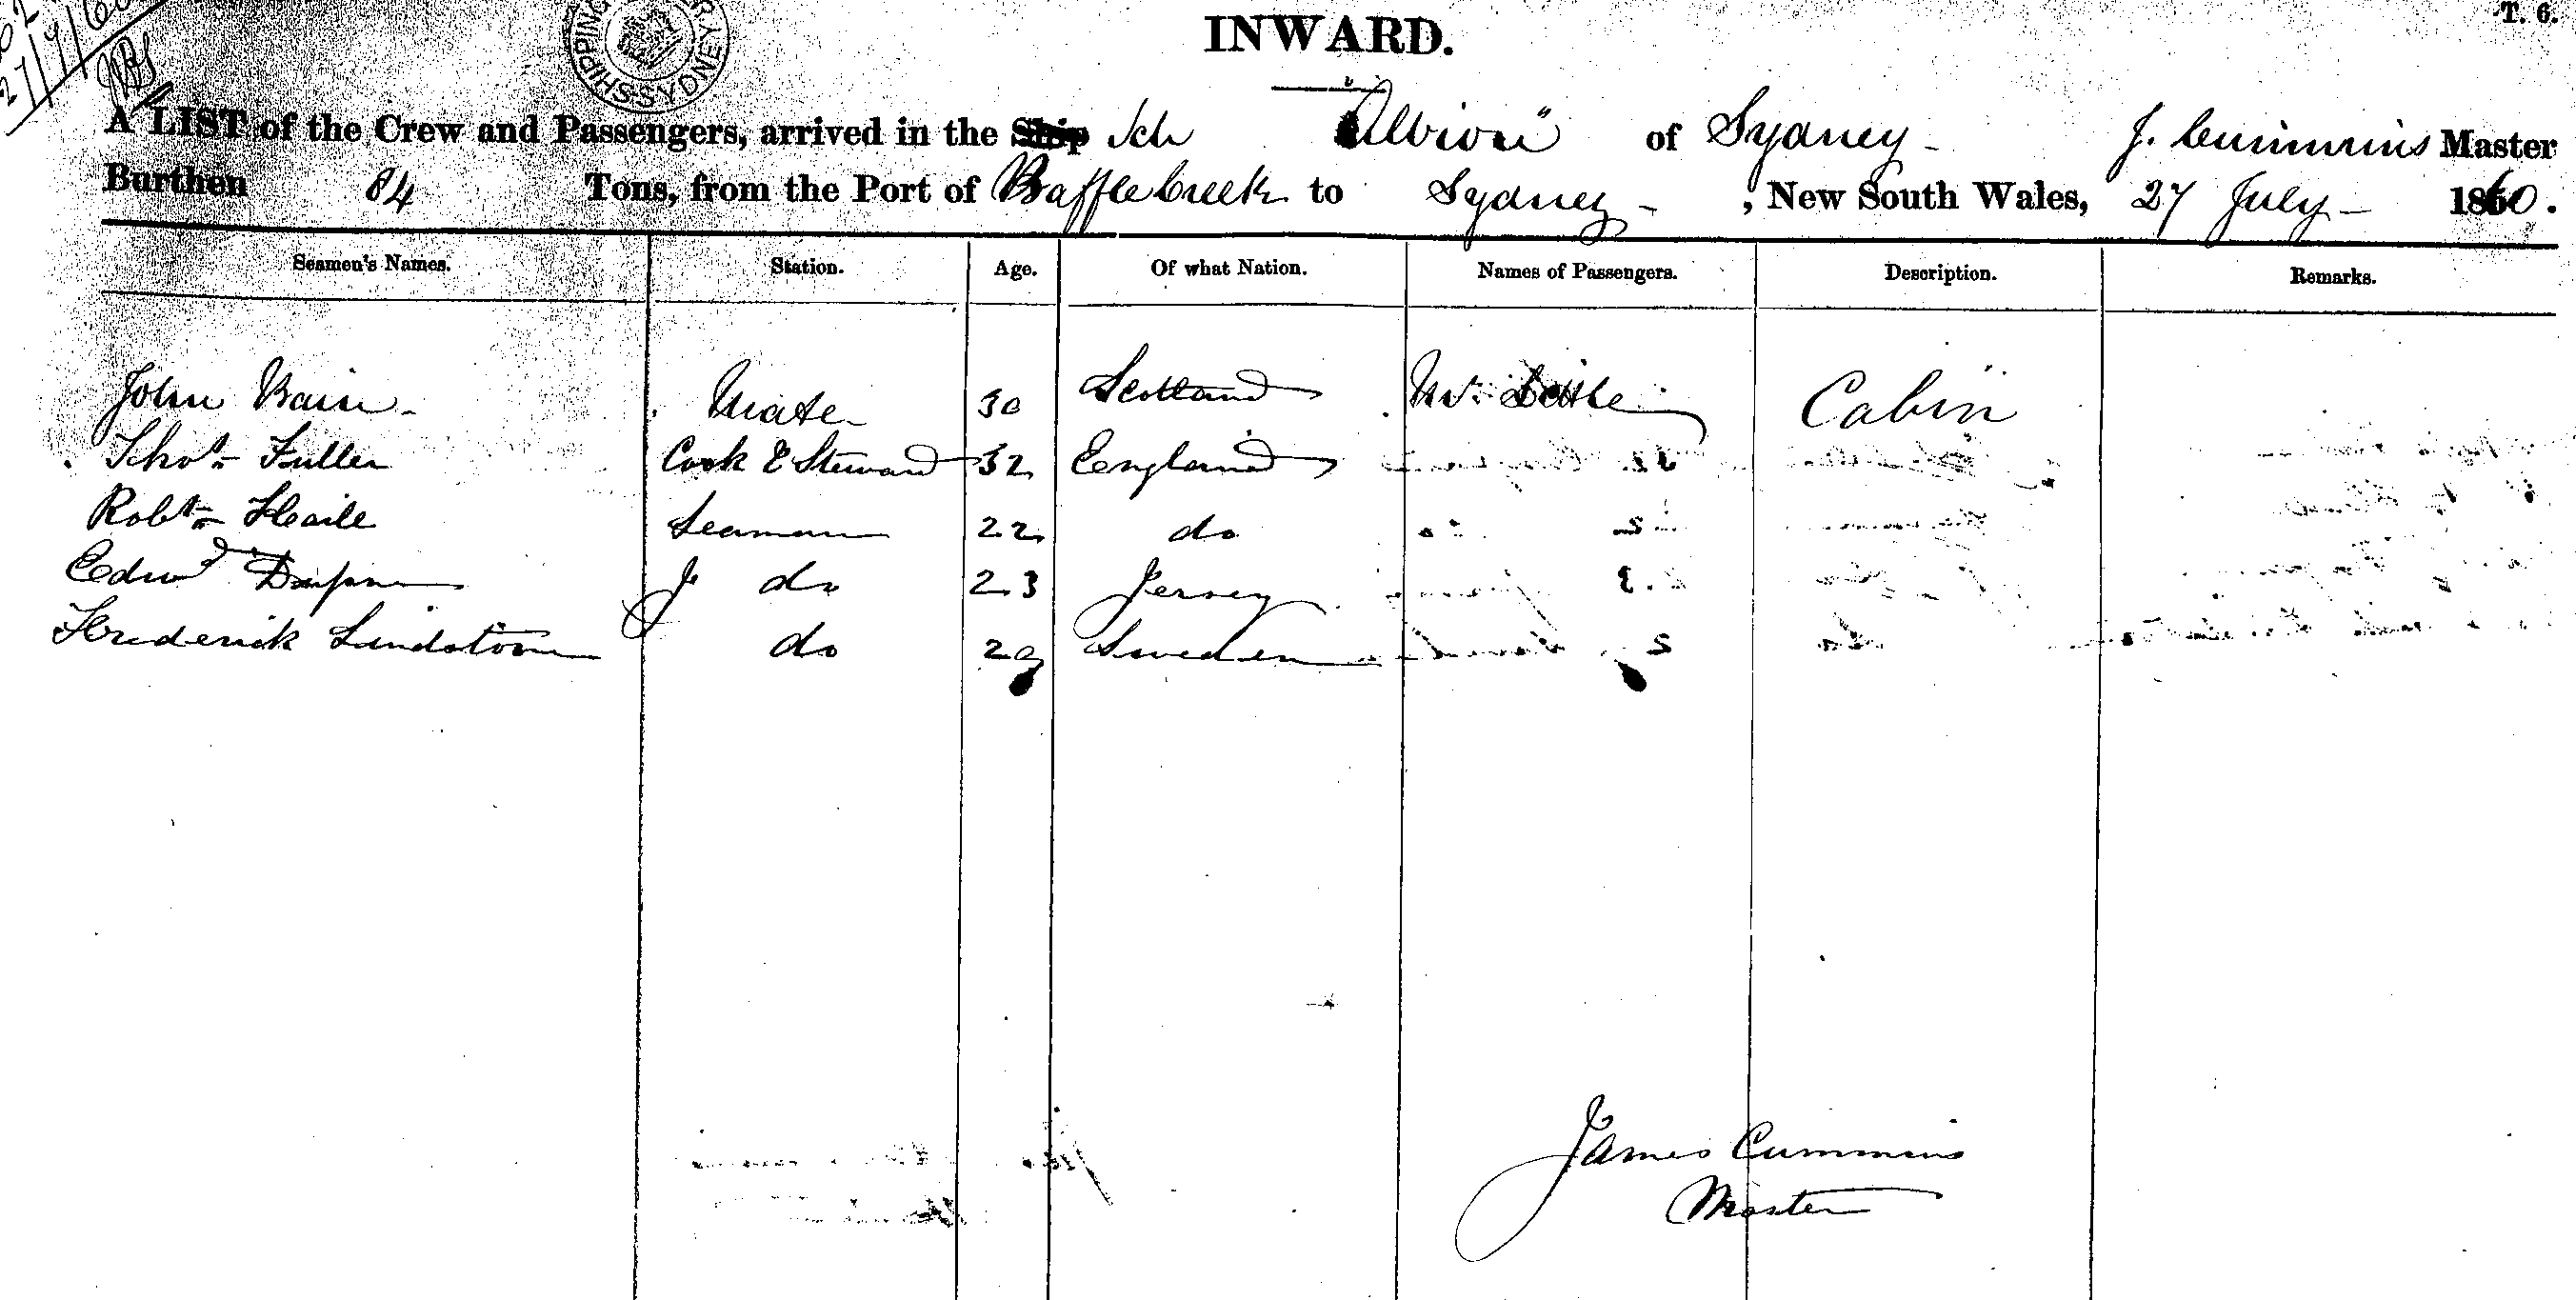 27/7/60
SHIPPING
SYDNEY
T. 6.
INWARD.
A LIST of the Crew and Passengers, arrived in the Ship Sch "Albion" of Sydney - J. Cummins Master
Burthen 84 Tons, from the Port of Baffle Creek to Sydney - , New South Wales, 27 July - 1860.
Seamen's Names. Station. Age. Of what Nation. Names of Passengers. Description. Remarks.
John Bain - Mate 30 Scotland Mr. Little Cabin
Thos Fuller Cook & Steward 32 England
Robt Seaman 22 do
Edwd do 23 Jersey
Frederick Lindstorm do 29 Sweden
James Cummins
Master